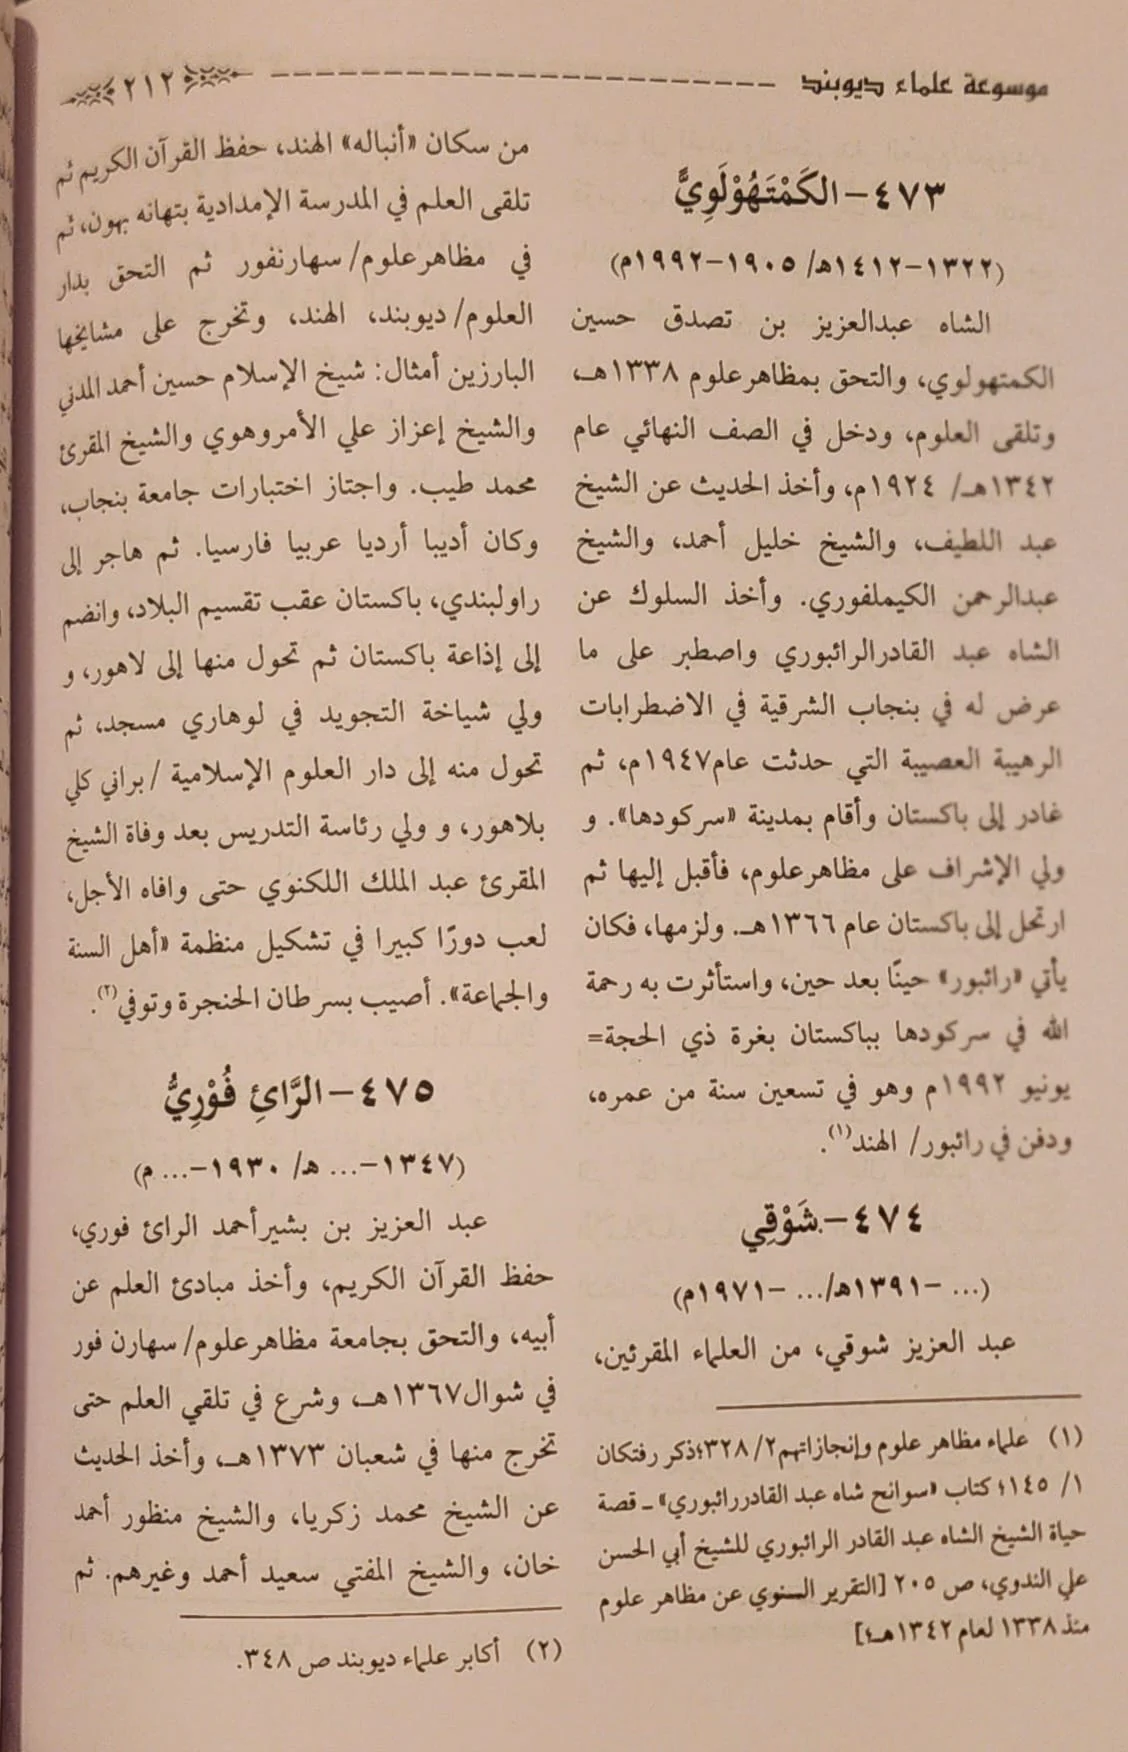 موسوعة علماء ديوبند ٢١٢
٤٧٣- الكَمْتَهُوْلَوِيُّ
(١٣٢٢-١٤١٢هـ/ ١٩٠٥-١٩٩٢م)
الشاه عبدالعزيز بن تصدق حسين
الكمتهولوي، والتحق بمظاهرعلوم ١٣٣٨هـ،
وتلقى العلوم، ودخل في الصف النهائي عام
١٣٤٢هـ/ ١٩٢٤م، وأخذ الحديث عن الشيخ
عبد اللطيف، والشيخ خليل أحمد، والشيخ
عبدالرحمن الكيملفوري. وأخذ السلوك عن
الشاه عبد القادرالرائبوري واصطبر على ما
عرض له في بنجاب الشرقية في الاضطرابات
الرهيبة العصيبة التي حدثت عام١٩٤٧م، ثم
غادر إلى باكستان وأقام بمدينة «سركودها». و
ولي الإشراف على مظاهرعلوم، فأقبل إليها ثم
ارتحل إلى باكستان عام ١٣٦٦هـ. ولزمها، فكان
يأتي «رائبور» حينًا بعد حين، واستأثرت به رحمة
الله في سركودها بباكستان بغرة ذي الحجة=
يونيو ١٩٩٢م وهو في تسعين سنة من عمره،
ودفن في رائبور/ الهند(١).
٤٧٤- شَوْقِي
(... -١٣٩١هـ/... -١٩٧١م)
عبد العزيز شوقي، من العلماء المقرئين،
(١) علماء مظاهر علوم وإنجازاتهم٢/ ٣٢٨؛ذكر رفتكان
١/ ١٤٥؛ كتاب «سوانح شاه عبد القادررائبوري» - قصة
حياة الشيخ الشاه عبد القادر الرائبوري للشيخ أبي الحسن
علي الندوي، ص ٢٠٥ [التقرير السنوي عن مظاهر علوم
منذ ١٣٣٨ لعام ١٣٤٢هـ؛]
من سكان «أنباله» الهند، حفظ القرآن الكريم ثم
تلقى العلم في المدرسة الإمدادية بتهانه بهون، ثم
في مظاهرعلوم/ سهارنفور ثم التحق بدار
العلوم/ ديوبند، الهند، وتخرج على مشايخها
البارزين أمثال: شيخ الإسلام حسين أحمد المدني
والشيخ إعزاز علي الأمروهوي والشيخ المقرئ
محمد طيب. واجتاز اختبارات جامعة بنجاب،
وكان أديبا أرديا عربيا فارسيا. ثم هاجر إلى
راولبندي، باكستان عقب تقسيم البلاد، وانضم
إلى إذاعة باكستان ثم تحول منها إلى لاهور، و
ولي شياخة التجويد في لوهاري مسجد، ثم
تحول منه إلى دار العلوم الإسلامية /براني كلي
بلاهور، و ولي رئاسة التدريس بعد وفاة الشيخ
المقرئ عبد الملك اللكنوي حتى وافاه الأجل،
لعب دورًا كبيرا في تشكيل منظمة «أهل السنة
والجماعة». أصيب بسرطان الحنجرة وتوفي(٢).
٤٧٥- الرَّائِ فُوْرِيُّ
(١٣٤٧-... هـ/ ١٩٣٠-... م)
عبد العزيز بن بشيرأحمد الرائ فوري،
حفظ القرآن الكريم، وأخذ مبادئ العلم عن
أبيه، والتحق بجامعة مظاهرعلوم/ سهارن فور
في شوال١٣٦٧هـ، وشرع في تلقي العلم حتى
تخرج منها في شعبان ١٣٧٣هـ، وأخذ الحديث
عن الشيخ محمد زكريا، والشيخ منظور أحمد
خان، والشيخ المفتي سعيد أحمد وغيرهم. ثم
(٢) أكابر علماء ديوبند ص ٣٤٨.